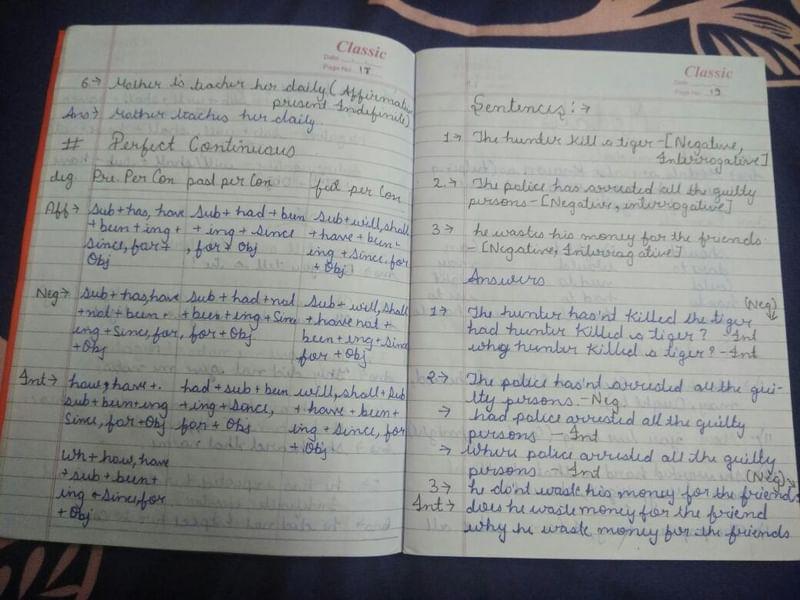 Classic
Date
Page No. 18
6→ Mother is teacher her daily (Affirmative
present Indefinite)
Ans→ Mother teaches her daily.
# Perfect Continuous
deg Pre. Per Con past per Con fut per Con
Aff→ Sub + has, have Sub + had + bun Sub + will, shall
+ bun + ing + + ing + since + have + bun -
Since, for + , for + Obj ing + Since, for
Obj + Obj
Neg→ Sub + has, have Sub + had + not Sub + will, shall
+ not + bun + + bun + ing + Sinc + have not +
ing + Since, for, for + Obj bun + ing + Since
+ Obj for + Obj
Int→ have + . had + sub + bun will, shall + Sub
sub + bun + ing + ing + Since, + have + bun +
Since, for + Obj for + Obj ing + Since, for
+ Obj
wh + how, have
+ sub + bun +
ing + Since, for
+ Obj
Classic
Date
Page No. 19
Sentences :→
1.→ The hunter kill is tiger - [Negative,
Interrogative]
2.→ The police has arrested all the guilty
persons - [Negative, interrogative]
3→ he wastes his money for the friends
- [Negative, Interriagative]
Answers
(Neg)
1→ The hunter has'nt killed the tiger
had hunter killed is tiger? - Int
why hunter killed is tiger? - Int
2→ The police has'nt arrested all the gui-
lty persons. - Neg
→ had police arrested all the guilty
persons - Int
→ Where police arrested all the guilty
persons - Int
(Neg)
3→ he do'nt waste his money for the friends
Int→ does he waste money for the friend
why he waste money for the friends